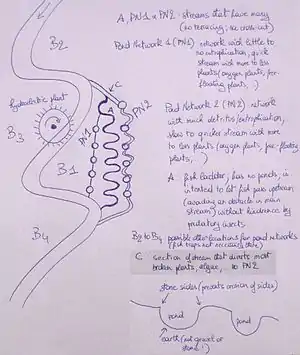 A, PN1 & PN2: streams that have many
(no terracing; see cross-cut)
Pond Network 1 (PN1) network with little to
no eutrophication, quick
stream with more to less
plants (oxygen plants, free-
floating plants, ..)
B2
hydroelectric plant
C
PN2
A
PN1
B3
B1
B4
Pond Network 2 (PN2) network
with much detritus/eutrophication,
slow to quicker stream with more
to less plants (oxygen plants, free-floating
plants, ..)
A fish ladder, has no ponds, is
intended to let fish pass upstream
(avoiding an obstacle in main
stream) without hindrance by
predatory insects
B2 to B4 possible other locations for pond networks
(fish traps not necessary there)
C section of stream that diverts most
broken plants, algae, to PN2
stone sides (prevents erosion of sides)
pond
pond
earth (not gravel or
stone!)